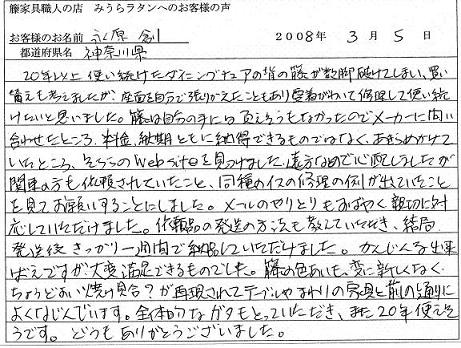 籐家具職人の店 みうらラタンへのお客様の声
お客様のお名前 永原 創 2008年 3月 5日
都道府県名 神奈川県
20年以上使い続けたダイニングチェアの背の籐が数脚破けてしまい、買い
替えも考えましたが、座面を自分で張りかえたこともあり愛着がわいて修理して使い続
けたいと思いました。籐は自分の手には負えそうもなかったのでメーカーに問い
合わせたところ、料金、納期ともに納得できるものではなく、あきらめかけて
いたところ、そちらのWeb siteを見つけました。遠方なので心配しましたが
関東の方も依頼されていたこと、同種のイスの修理の例が出ていたこと
を見てお願いすることにしました。メールのやりとりもすばやく親切に対
応していただけました。依頼品の発送の方法も教えていただき、結局
発送後きっかり一週間で納品していただけました。かんじんな出来
ばえですが大変満足できるものでした。籐の色あいも、変に新しくなく
ちょうどよい焼け具合?が再現されてテーブルやまわりの家具と前の通りに
よくなじんでいます。全体的なガタもとっていただき、また20年使えそ
うです。どうもありがとうございました。